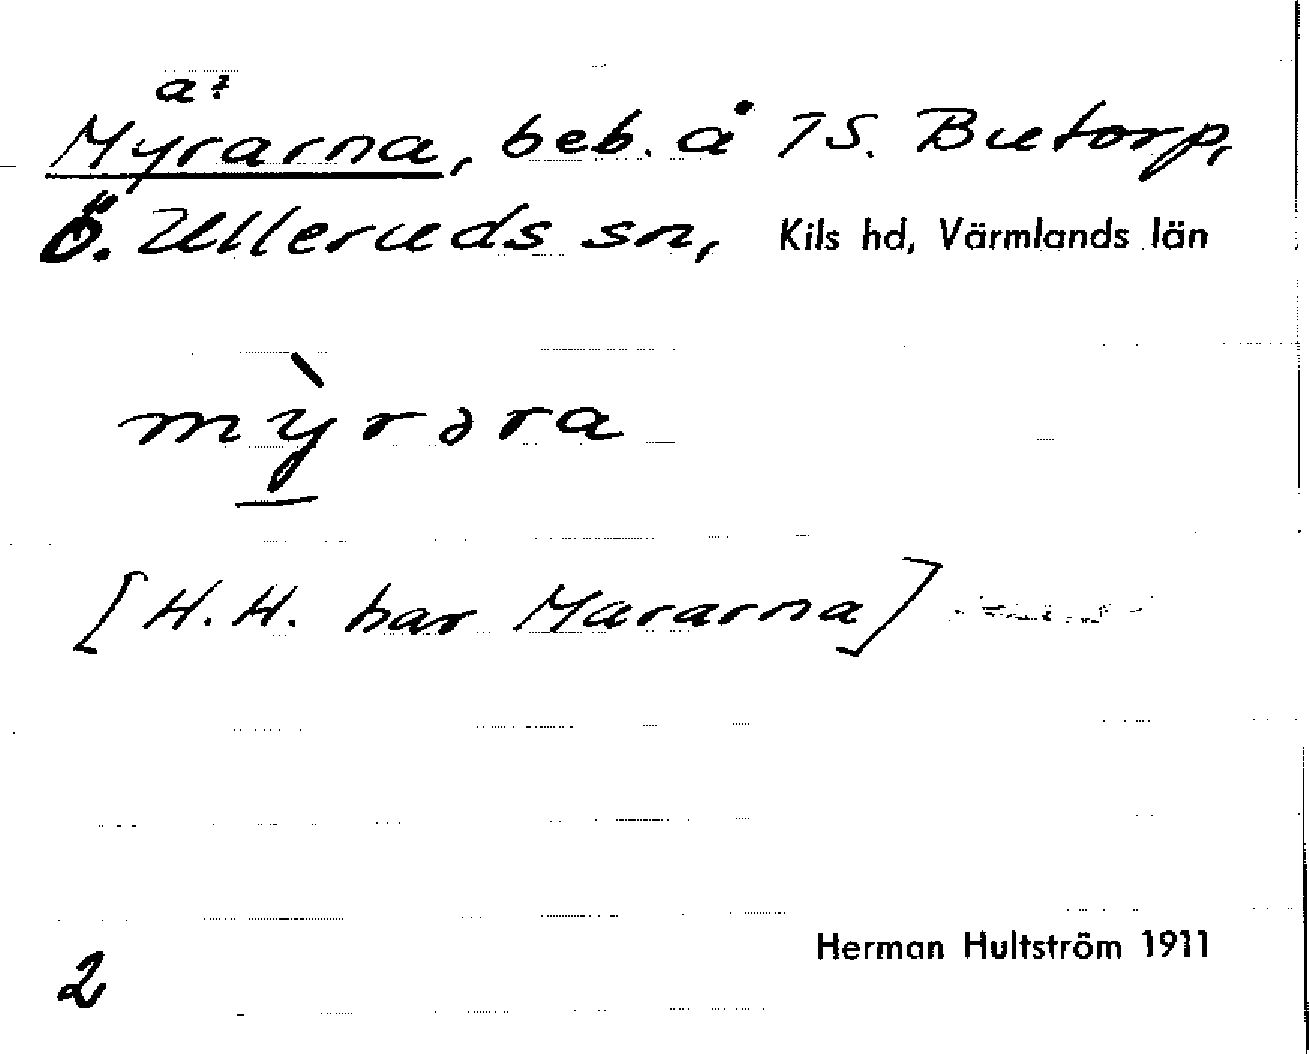 a?
Myrarna, beb. å 7S. Butorp,
Ö. Ulleruds sn, Kils hd, Värmlands län
mỳ̲rəra
[H.H. har Mararna]
Herman Hultström 1911
2